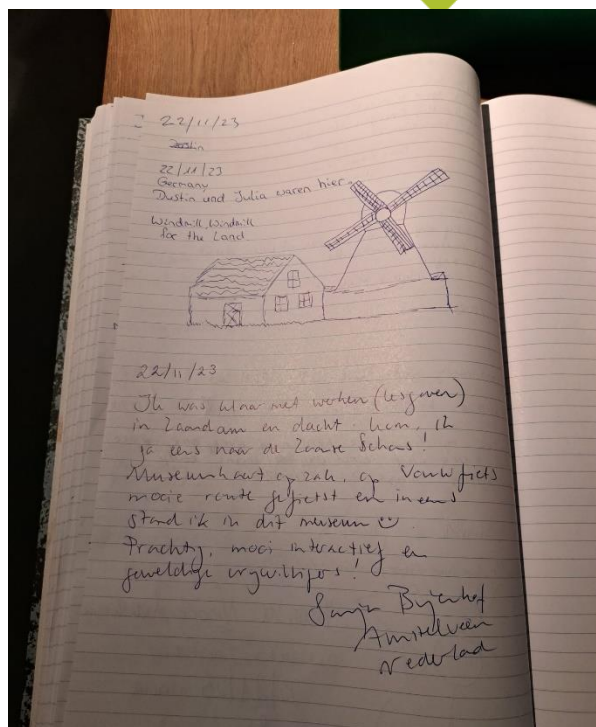 22/11/23
Dustin
22/11/23
Germany
Dustin und Julia waren hier.
Windmill, Windmill
for the Land.
22/11/23
Ik was klaar met werken (lesgeven)
in Zaandam en dacht: hem, ik
ga eens naar de Zaanse Schans!
Museumkaart op zak, op vouwfiets
mooie route gefietst en ineens
stand ik in dit museum ☺.
Prachtig, mooi interactief en
geweldige vrijwilligers!
Amstelveen
Nederlad